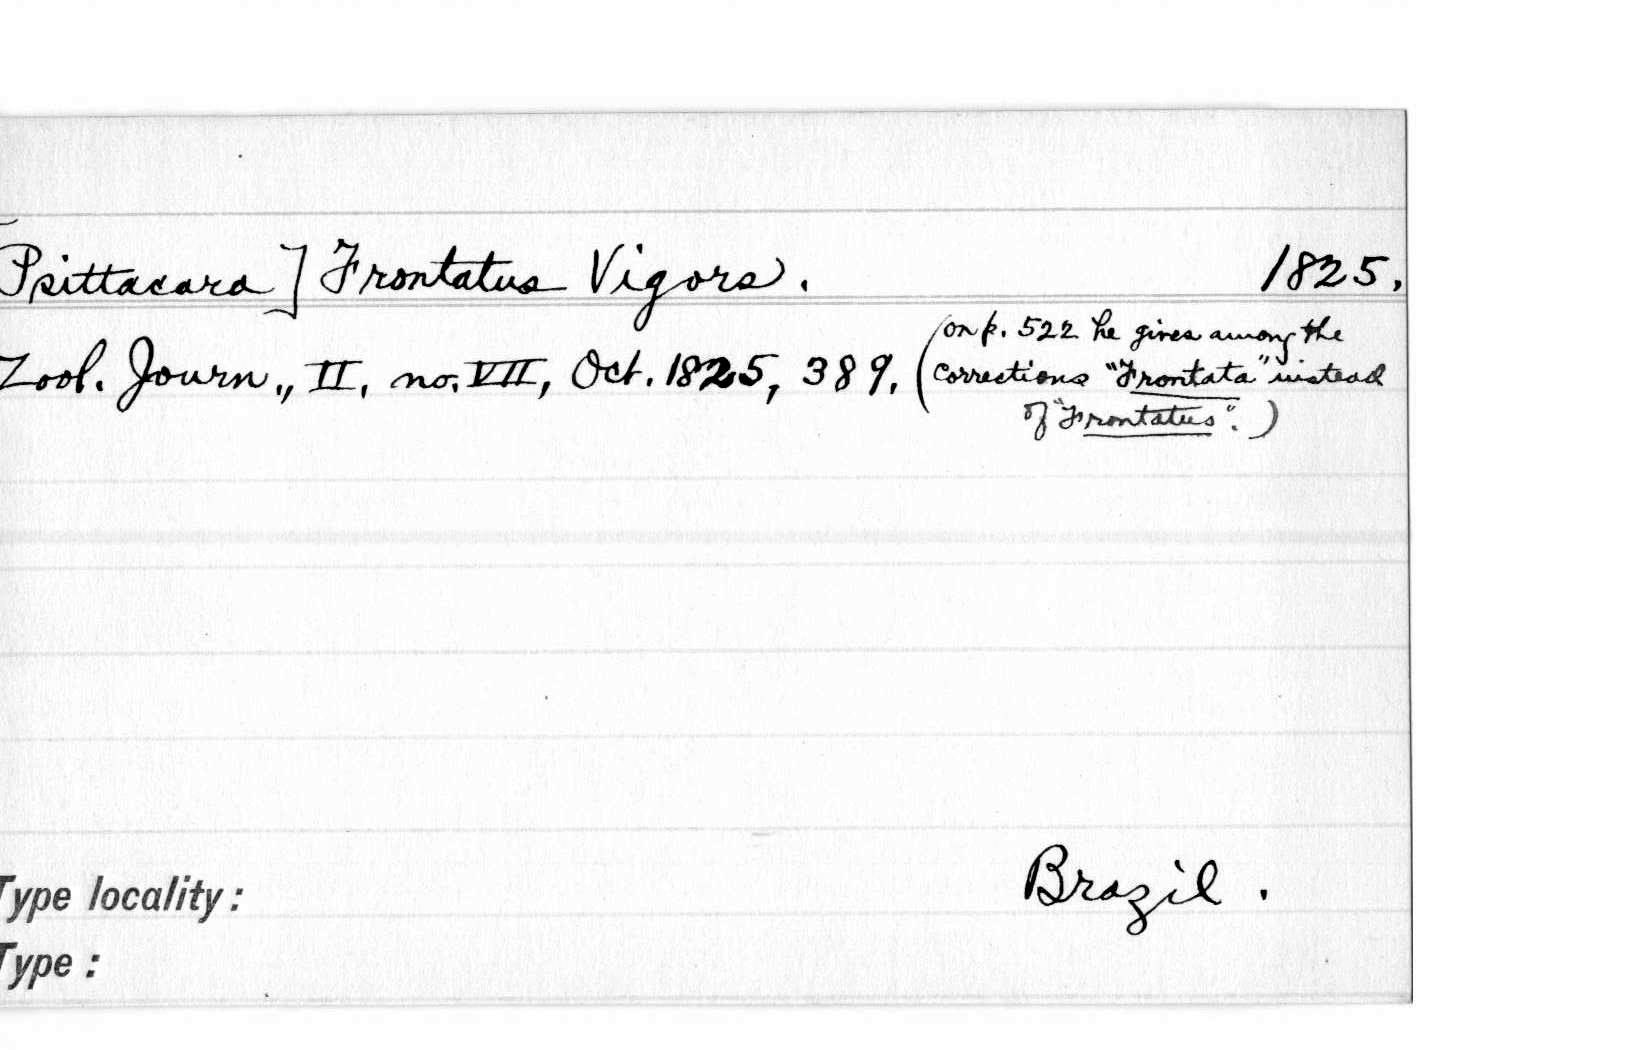 [Psittacara] Frontatus Vigors. 1825.
Zool. Journ., II, no. VII, Oct. 1825, 389. (on p. 522 he gives among the
corrections "Frontata" instead
of "Frontatus".)
Brazil.
Type locality:
Type: